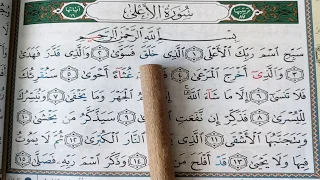 سُورَةُ الْأَعْلَىٰ
بِسْمِ اللَّهِ الرَّحْمَٰنِ الرَّحِيمِ
سَبِّحِ اسْمَ رَبِّكَ الْأَعْلَى ١ الَّذِي خَلَقَ فَسَوَّىٰ ٢ وَالَّذِي قَدَّرَ فَهَدَىٰ
٣ وَالَّذِي أَخْرَجَ الْمَرْعَىٰ ٤ غُثَاءً أَحْوَىٰ ٥ سَنُقْرِئُكَ
فَلَا تَنسَىٰ ٦ إِلَّا مَا شَاءَ اللَّهُ الْجَهْرَ وَمَا يَخْفَىٰ ٧ وَنُيَسِّرُكَ
لِلْيُسْرَىٰ ٨ فَذَكِّرْ إِن نَّفَعَتِ ٩ سَيَذَّكَّرُ مَن يَخْشَىٰ ١٠
وَيَتَجَنَّبُهَا الْأَشْقَى ١١ النَّارَ الْكُبْرَىٰ ١٢ ثُمَّ لَا يَمُوتُ
فِيهَا وَلَا يَحْيَىٰ ١٣ قَدْ أَفْلَحَ مَن ١٤ وَذَكَرَ اسْمَ رَبِّهِ فَصَلَّىٰ ١٥